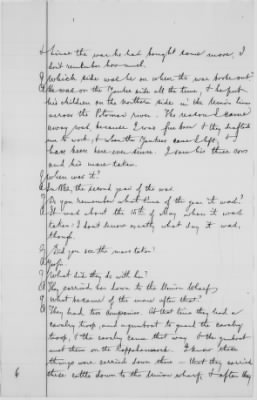 & since the war he had bought some more, I
don't remember how much.
Q Which side was he on when the war broke out?
A He was on the Yankee side all the time, & he put
his children on the northern side in the Union lines
across the Potomac river. The reason I came
away was, because I was free born & they drafted
me to work, & when the Yankees came I left, &
have been here ever since. I saw his three cows
and his mare taken.
Q When was it?
A In the second year of the war.
Q Do you remember what time of the year it was?
A It was about the 15th of May when it was
taken: I don't know exactly what day it was,
though.
Q Did you see the mare taken?
A Yes.
Q What did they do with her?
A They carried her down to the Union Wharf.
Q What became of the mare after that?
A They had two companies. At that time they had a
cavalry troop, and a gunboat to guard the cavalry
troop, & the cavalry came that way & the gunboat
met them on the Rappahannock. I know these
things were carried down there - that they carried
these cattle down to the Union wharf, & after they
6